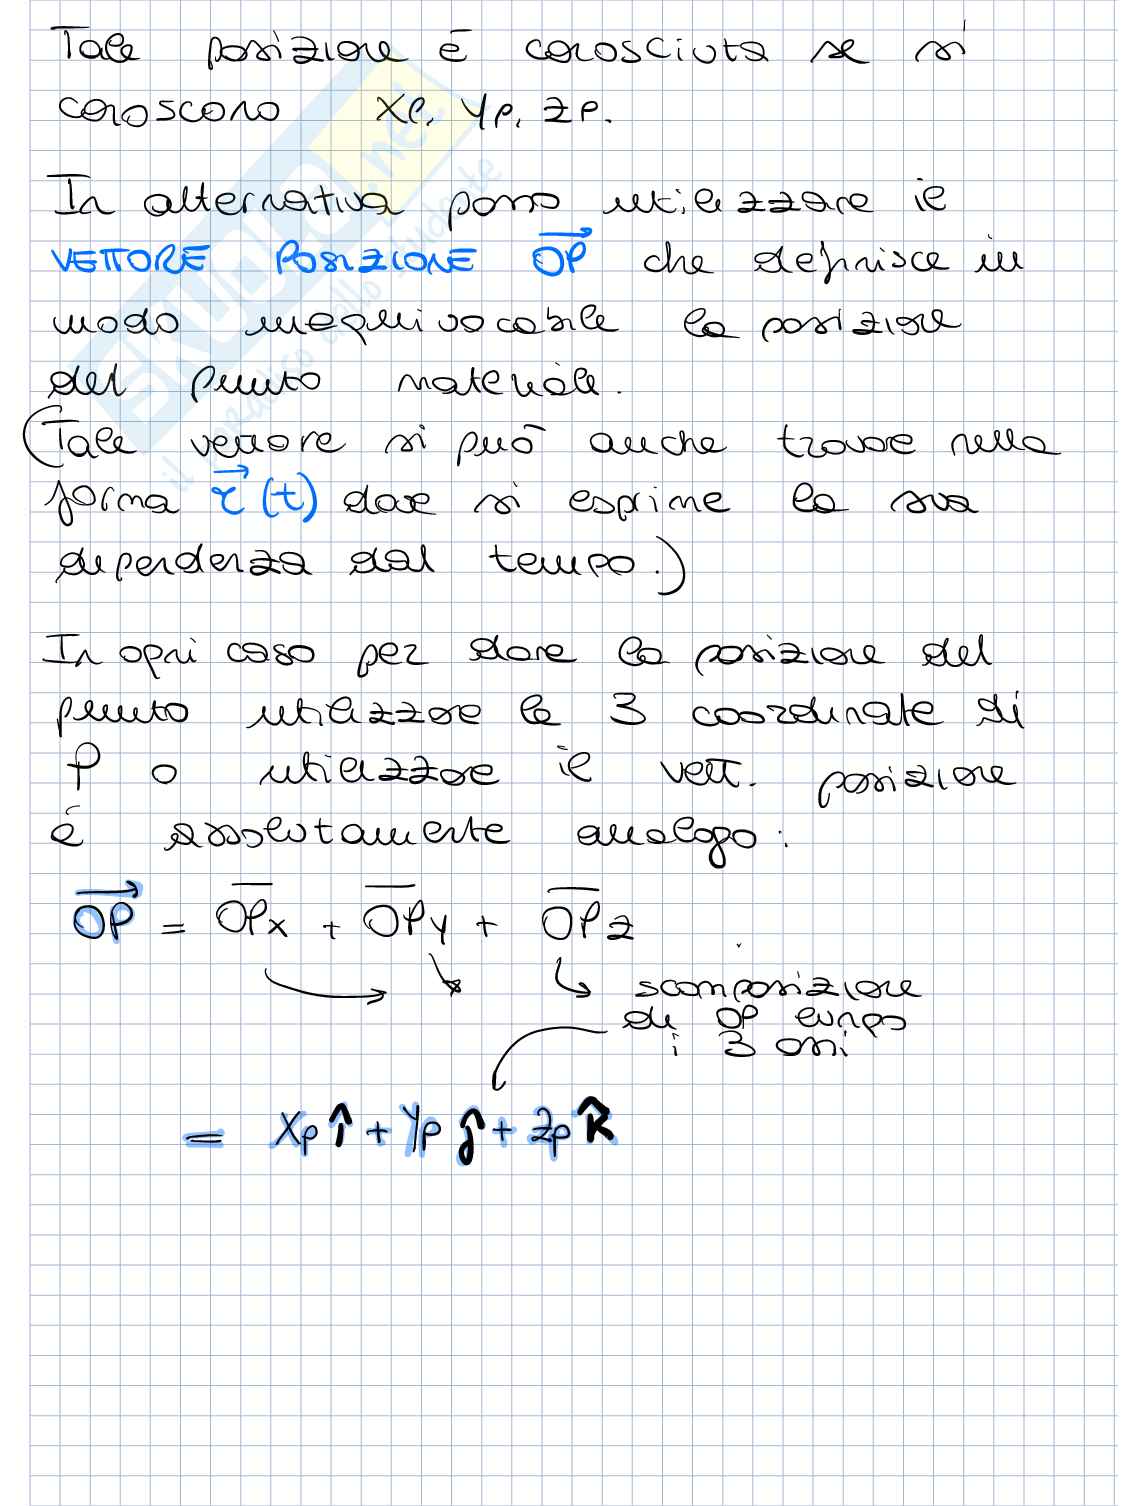 Tale posizione è conosciuta se si
conoscono xp, yp, zp.
In alternativa posso utilizzare il
VETTORE POSIZIONE OP che definisce in
modo inequivocabile la posizione
del punto materiale.
(Tale vettore si può anche trovare nella
forma r(t) dove si esprime la sua
dipendenza dal tempo.)
In ogni caso per dare la posizione del
punto utilizzare le 3 coordinate di
P o utilizzare il vett. posizione
è assolutamente analogo:
OP = OPx + OPy + OPz
scomposizione
di OP lungo
i 3 assi
= xp î + yp ĵ + zp k̂
SKUOLA.net
il paradiso dello studente